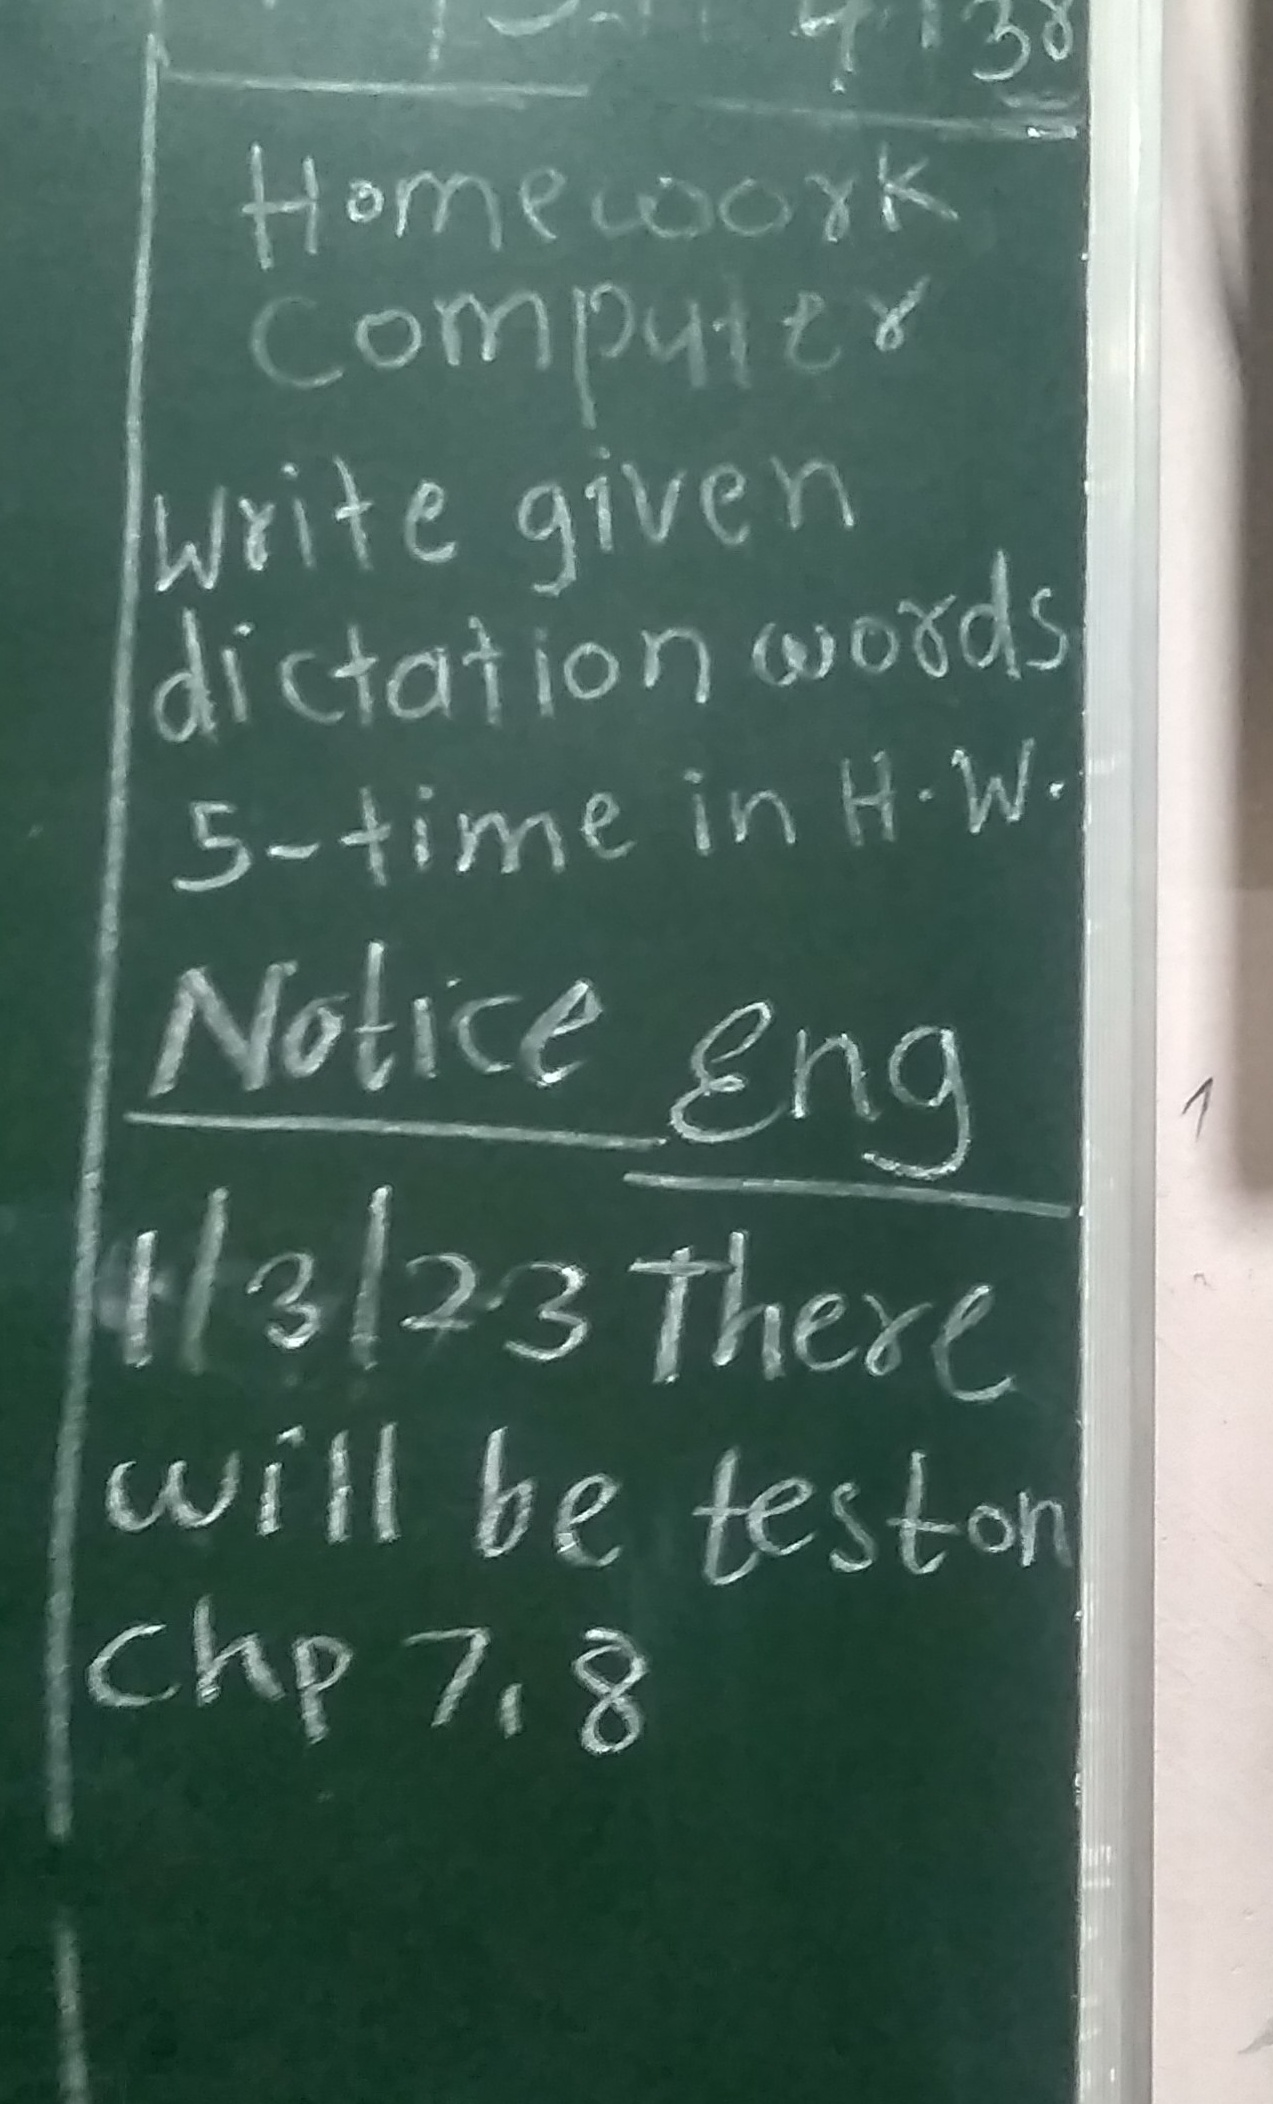 38
Homework
Computer
Write given
dictation words
5-time in H.W.
Notice Eng
1/3/23 There
will be test on
Chp 7, 8